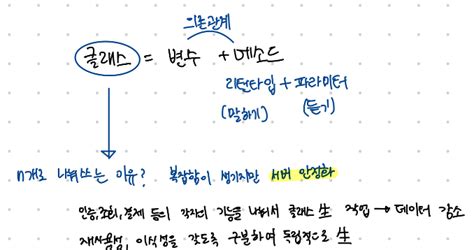 의존관계
클래스 = 변수 + 메소드
리턴타입 + 파라미터
(말하기) (듣기)
n개로 나눠쓰는 이유? 복잡함이 생기지만 서버 안정화
인증, 조회, 결제 등의 각자의 기능을 나눠서 클래스 生 작업 → 데이터 감소
재사용성, 이식성을 갖도록 구분하여 독립적으로 生